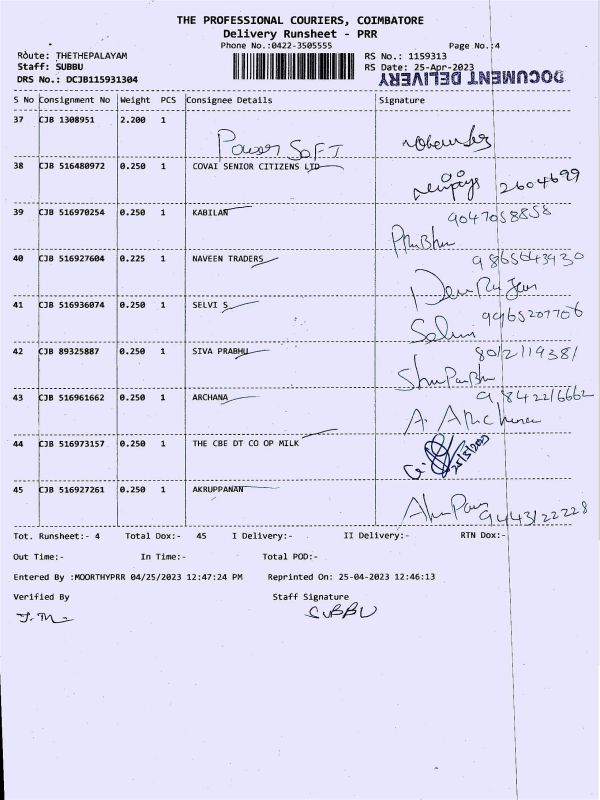 THE PROFESSIONAL COURIERS, COIMBATORE
Delivery Runsheet - PRR
Phone No.:0422-3505555 Page No.:4
Route: THETHEPALAYAM RS No.: 1159313
Staff: SUBBU RS Date: 25-Apr-2023
DRS No.: DCJB115931304 DOCUMENT DELIVERY
S No Consignment No Weight PCS Consignee Details Signature
37 CJB 1308951 2.200 1
Power SOFT
38 CJB 516480972 0.250 1 COVAI SENIOR CITIZENS LTD
2604699
39 CJB 516970254 0.250 1 KABILAN 9047058858
Prubhu
40 CJB 516927604 0.225 1 NAVEEN TRADERS 9865643930
41 CJB 516936074 0.250 1 SELVI S 9965207706
Selvi
42 CJB 89325887 0.250 1 SIVA PRABHU 8012119381
43 CJB 516961662 0.250 1 ARCHANA 9842216662
A.
44 CJB 516973157 0.250 1 THE CBE DT CO OP MILK
45 CJB 516927261 0.250 1 AKRUPPANAN
9443122228
Tot. Runsheet:- 4 Total Dox:- 45 I Delivery:- II Delivery:- RTN Dox:-
Out Time:- In Time:- Total POD:-
Entered By :MOORTHYPRR 04/25/2023 12:47:24 PM Reprinted On: 25-04-2023 12:46:13
Verified By Staff Signature
SUBBU